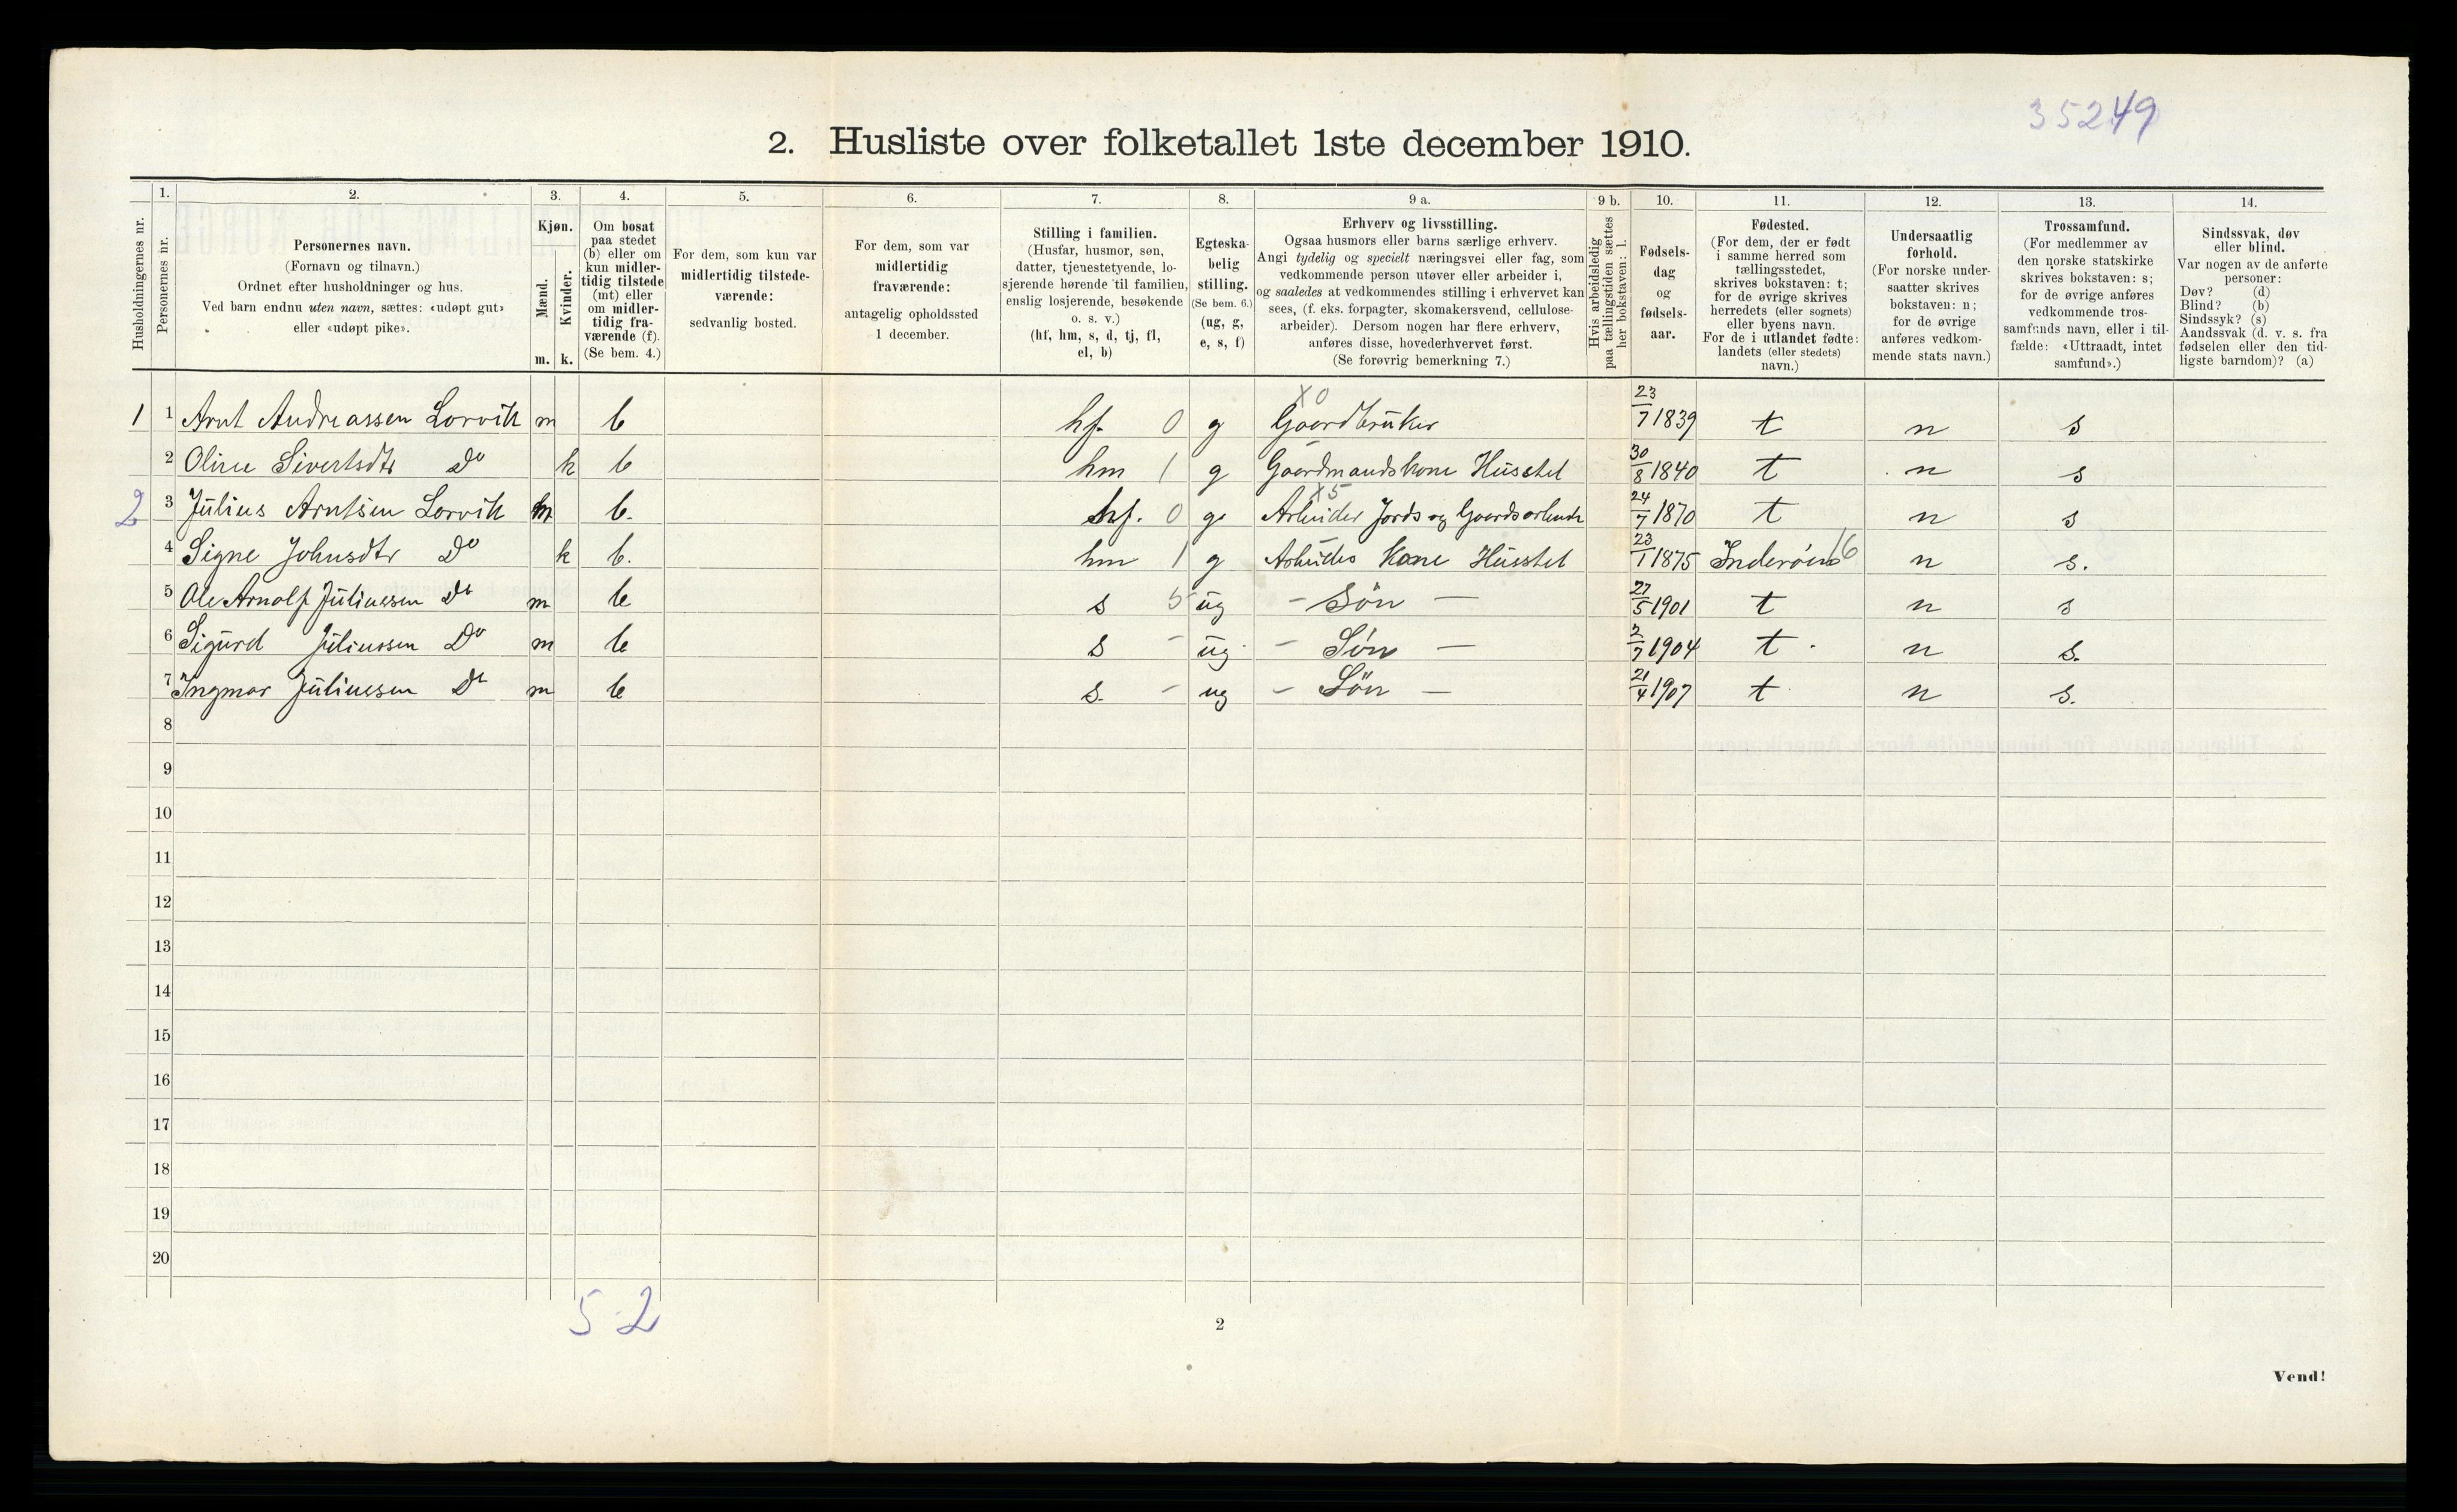 35249
2. Husliste over folketallet 1ste december 1910.
Husholdningernes nr.
1. Personernes nr.
2. Personernes navn. (Fornavn og tilnavn.) Ordnet efter husholdninger og hus. Ved barn endnu uten navn, sættes: «udøpt gut» eller «udøpt pike».
3. Kjøn. Mænd. m. Kvinder. k.
4. Om bosat paa stedet (b) eller om kun midlertidig tilstede (mt) eller om midlertidig fraværende (f). (Se bem. 4.)
5. For dem, som kun var midlertidig tilstedeværende: sedvanlig bosted.
6. For dem, som var midlertidig fraværende: antagelig opholdssted 1 december.
7. Stilling i familien. (Husfar, husmor, søn, datter, tjenestetyende, losjerende hørende til familien, enslig losjerende, besøkende o. s. v.) (hf, hm, s, d, tj, fl, el, b)
8. Egteskabelig stilling. (Se bem. 6.) (ug, g, e, s, f)
9 a. Erhverv og livsstilling. Ogsaa husmors eller barns særlige erhverv. Angi tydelig og specielt næringsvei eller fag, som vedkommende person utøver eller arbeider i, og saaledes at vedkommendes stilling i erhvervet kan sees, (f. eks. forpagter, skomakersvend, cellulosearbeider). Dersom nogen har flere erhverv, anføres disse, hovederhvervet først. (Se forøvrig bemerkning 7.)
9 b. Hvis arbeidsledig paa tællingstiden sættes her bokstaven: l.
10. Fødselsdag og fødselsaar.
11. Fødested. (For dem, der er født i samme herred som tællingsstedet, skrives bokstaven: t; for de øvrige skrives herredets (eller sognets) eller byens navn. For de i utlandet fødte: landets (eller stedets) navn.)
12. Undersaatlig forhold. (For norske undersaatter skrives bokstaven: n; for de øvrige anføres vedkommende stats navn.)
13. Trossamfund. (For medlemmer av den norske statskirke skrives bokstaven: s; for de øvrige anføres vedkommende trossamfunds navn, eller i tilfælde: «Uttraadt, intet samfund».)
14. Sindssvak, døv eller blind. Var nogen av de anførte personer: Døv? (d) Blind? (b) Sindssyk? (s) Aandssvak (d. v. s. fra fødselen eller den tidligste barndom)? (a)
1 1 Arnt Andreassen Lorvik m b hf. 0 g X0 Gaardbruker 23/7 1839 t n s
2 Oline Sivertsdtr Do k b hm 1 g Gaardmandskone Husstel 30/8 1840 t n s
2 3 Julius Arntsen Lorvik m b. hf. 0 g X5 Arbeider Jords og Gaardsarbeide 24/7 1870 t n s
4 Signe Johnsdtr Do k b. hm 1 g Arbeides Kone Husstel 23/1 1875 Inderøen 16 n s.
5 Ole Arnolf Juliussen Do m b s 5 ug - Søn - 27/5 1901 t n s
6 Sigurd Juliussen Do m b s - ug - Søn - 2/7 1904 t n s.
7 Ingmar Juliussen Do m b s. - ug - Søn - 21/4 1907 t n s.
8
9
10
11
12
13
14
15
16
17
18
19
20
5 2
2
Vend!